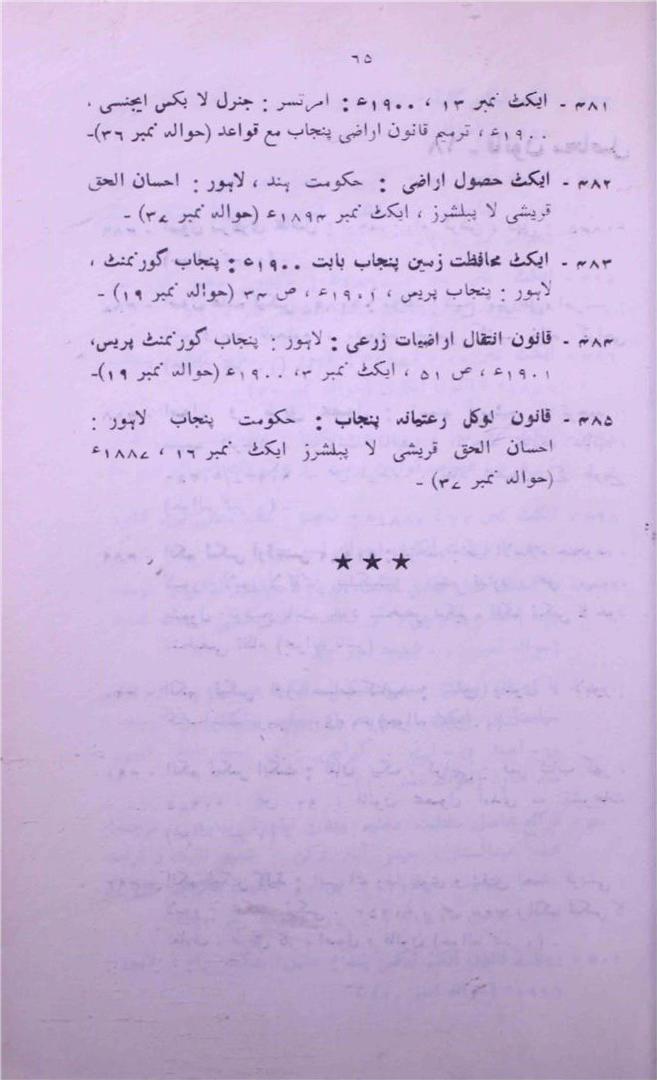 ٦٥
۴۸۱ - ایکٹ نمبر ۱۳ ، ۱۹۰۰ء : امرتسر : جنرل لا بکس ایجنسی ،
۱۹۰۰ء ، ترمیم قانون اراضی پنجاب مع قواعد (حوالہ نمبر ۳۶)-
۴۸۲ - ایکٹ حصول اراضی : حکومت ہند ، لاہور : احسان الحق
قریشی لا پبلشرز ، ایکٹ نمبر ۱۸۹۴ء (حوالہ نمبر ۳۷) -
۴۸۳ - ایکٹ محافظت زمین پنجاب بابت ۱۹۰۰ء : پنجاب گورنمنٹ ،
لاہور : پنجاب پریس ، ۱۹۰۱ء ، ص ۳۴ (حوالہ نمبر ۱۹) -
۴۸۴ - قانون انتقال اراضیات زرعی : لاہور : پنجاب گورنمنٹ پریس،
۱۹۰۱ء ، ص ۵۱ ، ایکٹ نمبر ۳، ۱۹۰۰ء (حوالہ نمبر ۱۹)-
۴۸۵ - قانون لوکل رعتیانہ پنجاب : حکومت پنجاب لاہور :
احسان الحق قریشی لا پبلرز ایکٹ نمبر ۱۶ ، ۱۸۸۷ء
(حوالہ نمبر ۳۷) -
★ ★ ★